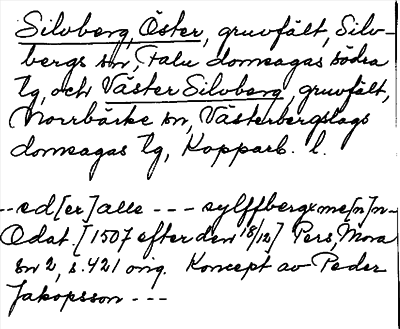 Silvberg, Öster, gruvfält, Silv-
bergs sn, Falu domsagas södra
tg, och Väster Silvberg, gruvfält,
Norrbärke sn, Västerbergslags
domsagas tg, Kopparb. l.
--ed[er] alle --- sylffbergxme[n]n-
Odat. [1507 efter den 18/12] Pers, Mora
sn 2, s. 421 orig. Koncept av Peder
Jakopsson ---